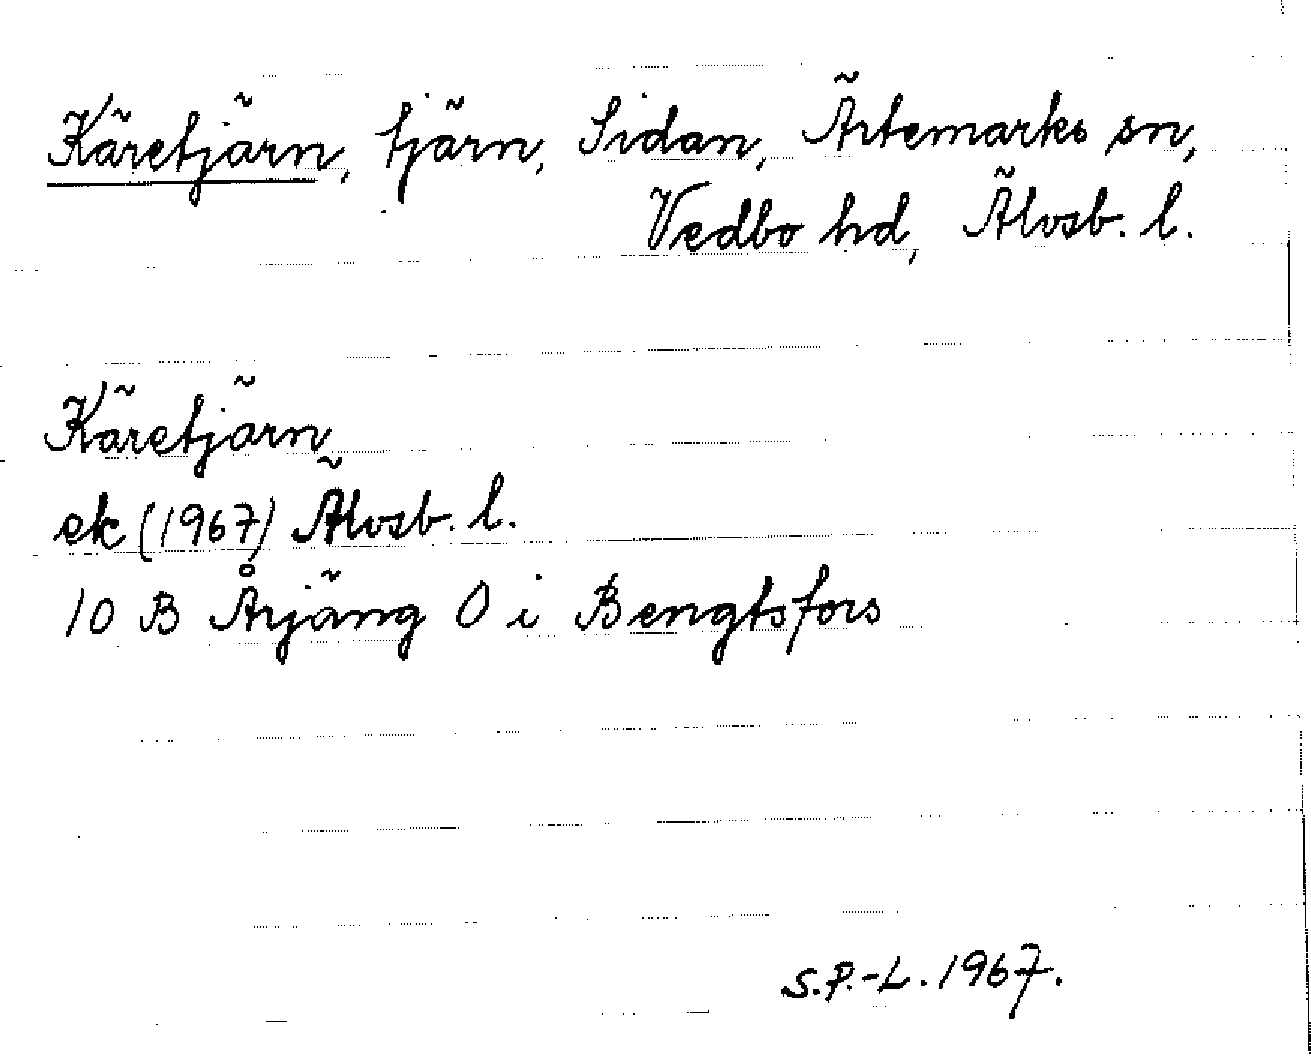 Käretjärn, tjärn, Sidan, Ärtemarks sn,
Vedbo hd, Älvsb. l.
Käretjärn
ek (1967) Älvsb. l.
10 B Årjäng O i Bengtsfors
S.P.-L. 1967.